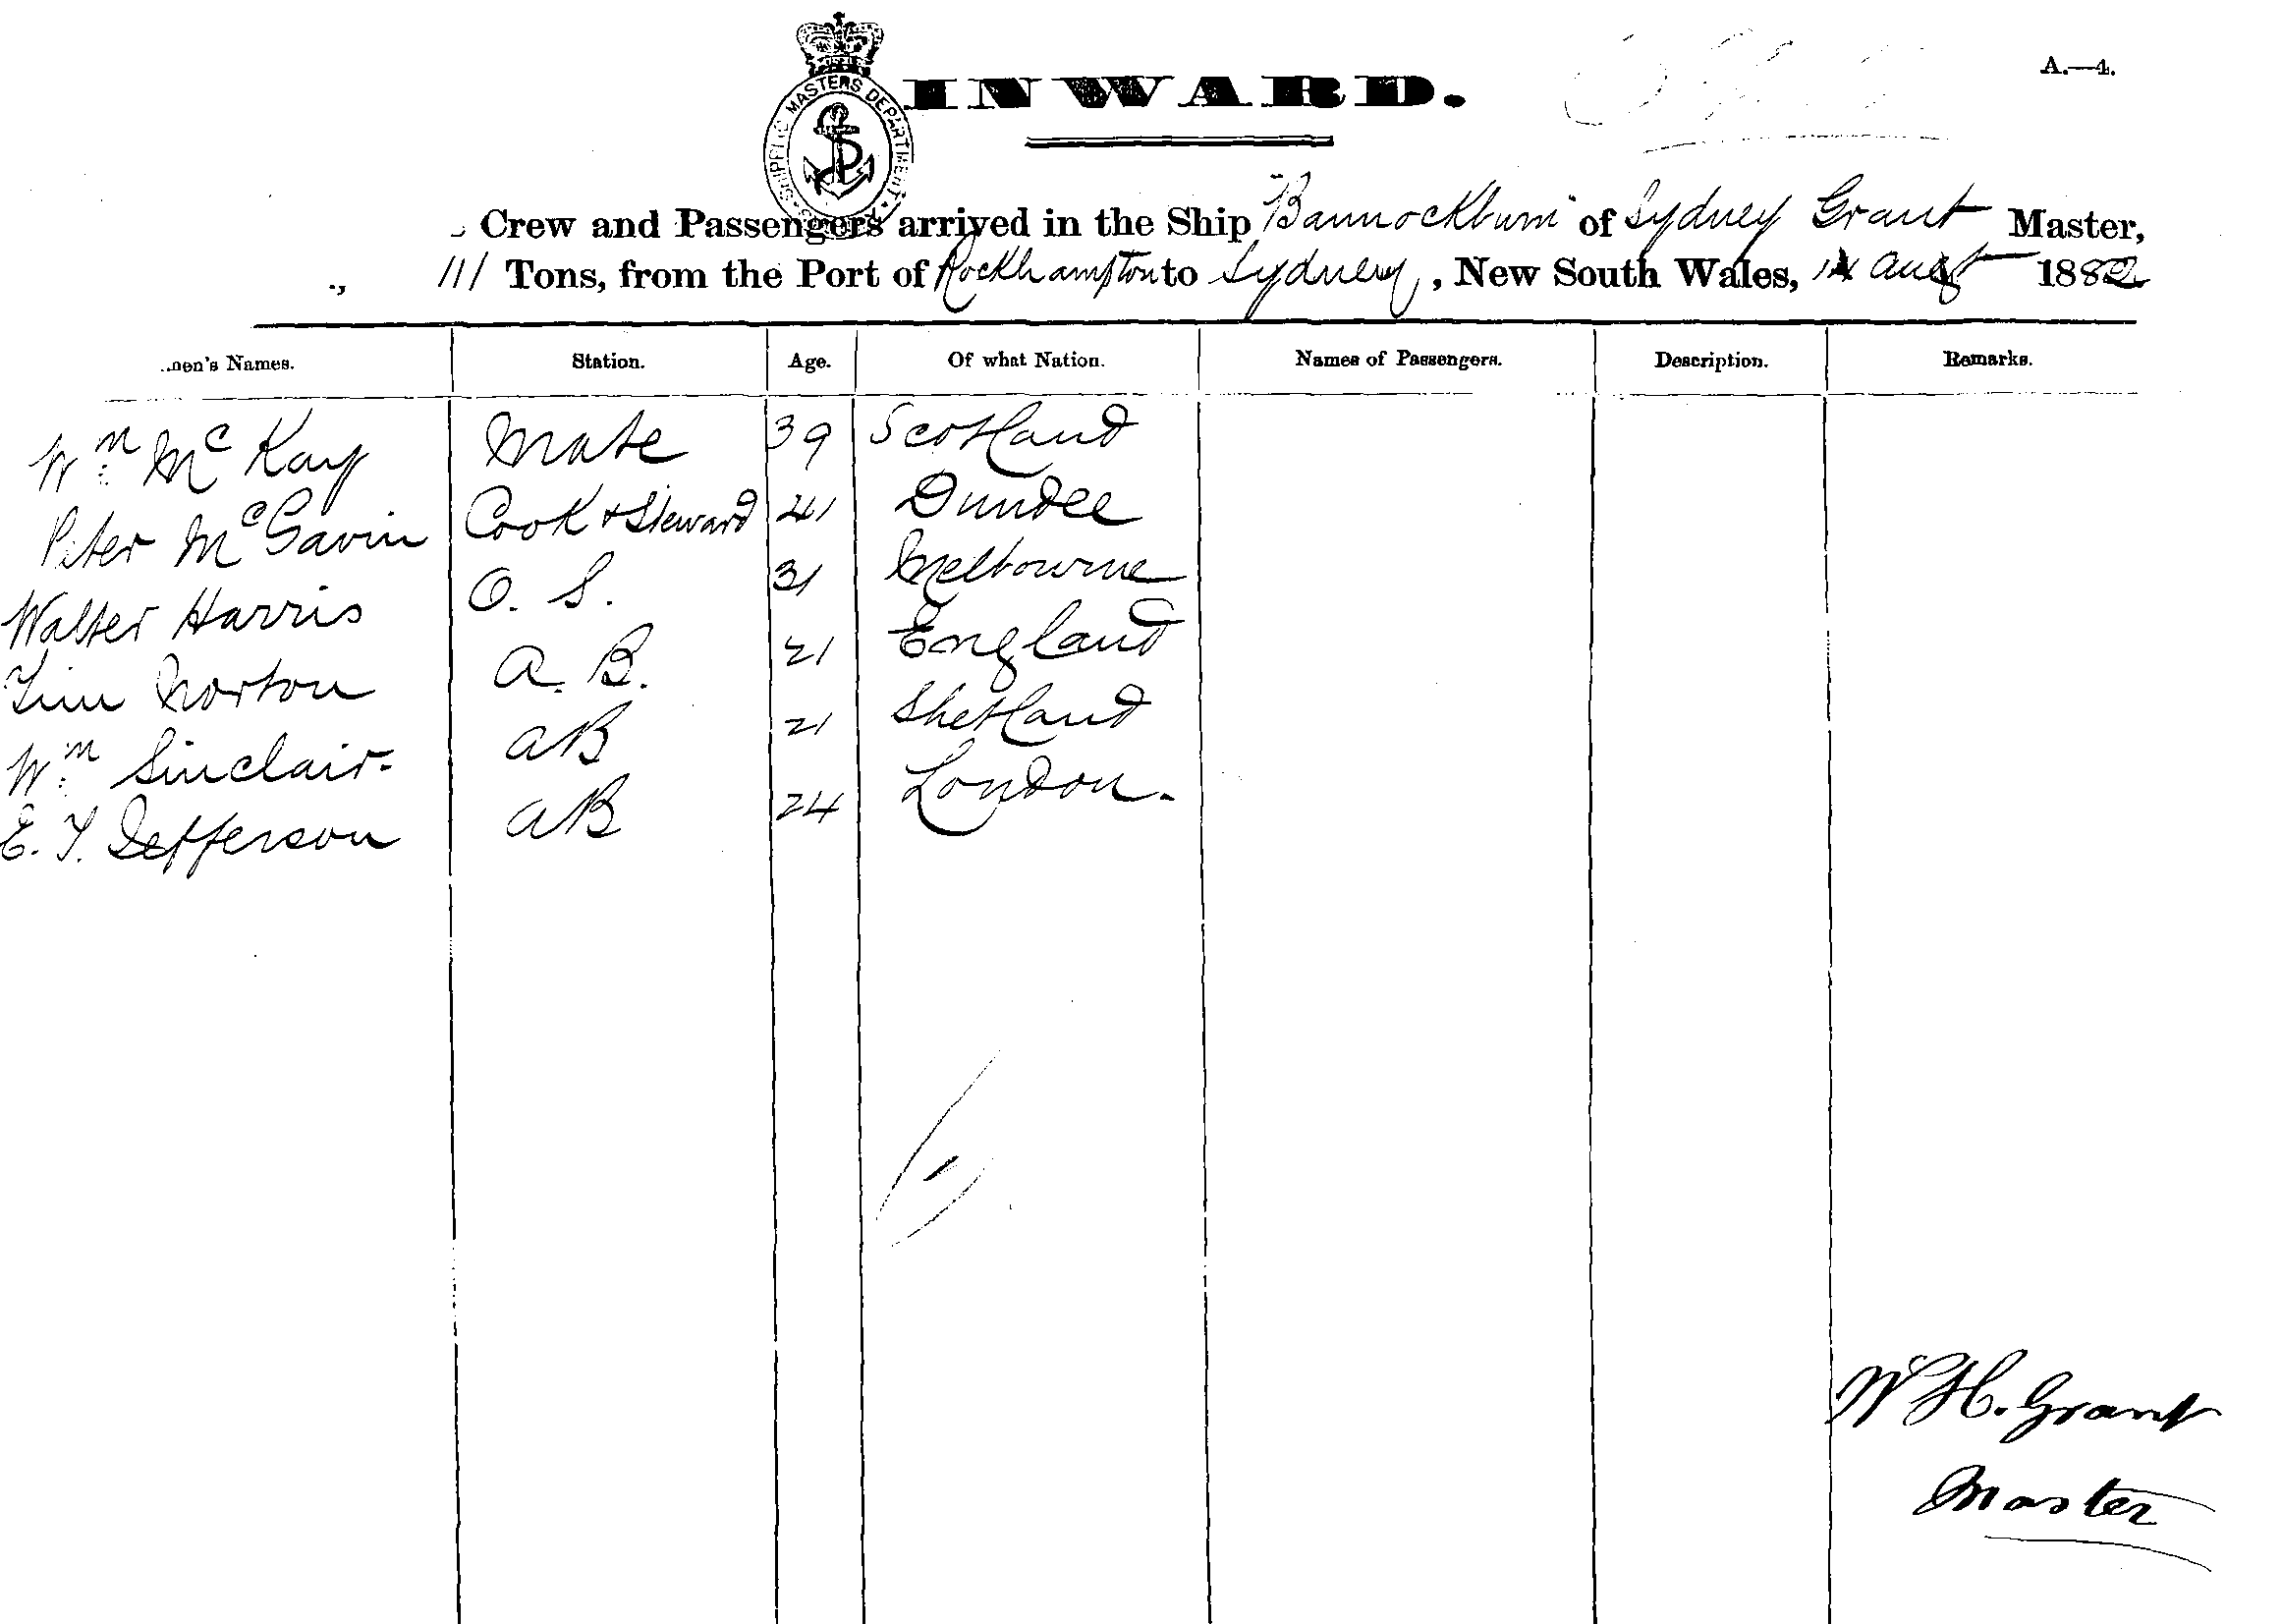 A.—4.
SHIPPING MASTERS DEPARTMENT
INWARD.
Crew and Passengers arrived in the Ship "Bannockburn" of Sydney Grant Master,
111 Tons, from the Port of Rockhampton to Sydney, New South Wales, Augst 1882
Names. Station. Age. Of what Nation. Names of Passengers. Description. Remarks.
Wm McKay Mate 39 Scotland
Peter McGavin Cook & Steward 41 Dundee
Walter Harris O. S. 31 Melbourne
Tim Norton A. B. 21 England
Wm Sinclair AB 21 Shetland
E. T. Jefferson AB 24 London.
W H. Grant
Master